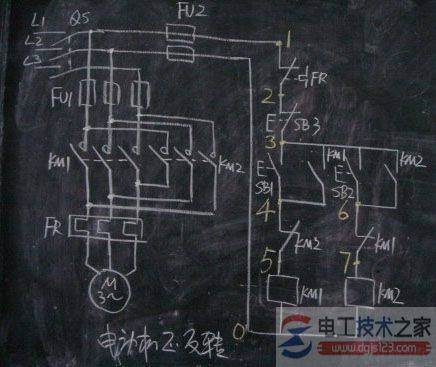 L1 QS
L2
L3
FU2
1
FR
2
E
SB3
3
FU1
KM1
KM2
KM1
KM2
E
SB1
E
SB2
4
6
FR
KM2
KM1
5
7
M
3~
KM1
KM2
0
电动机正反转
电工技术之家
www.dgjs123.com